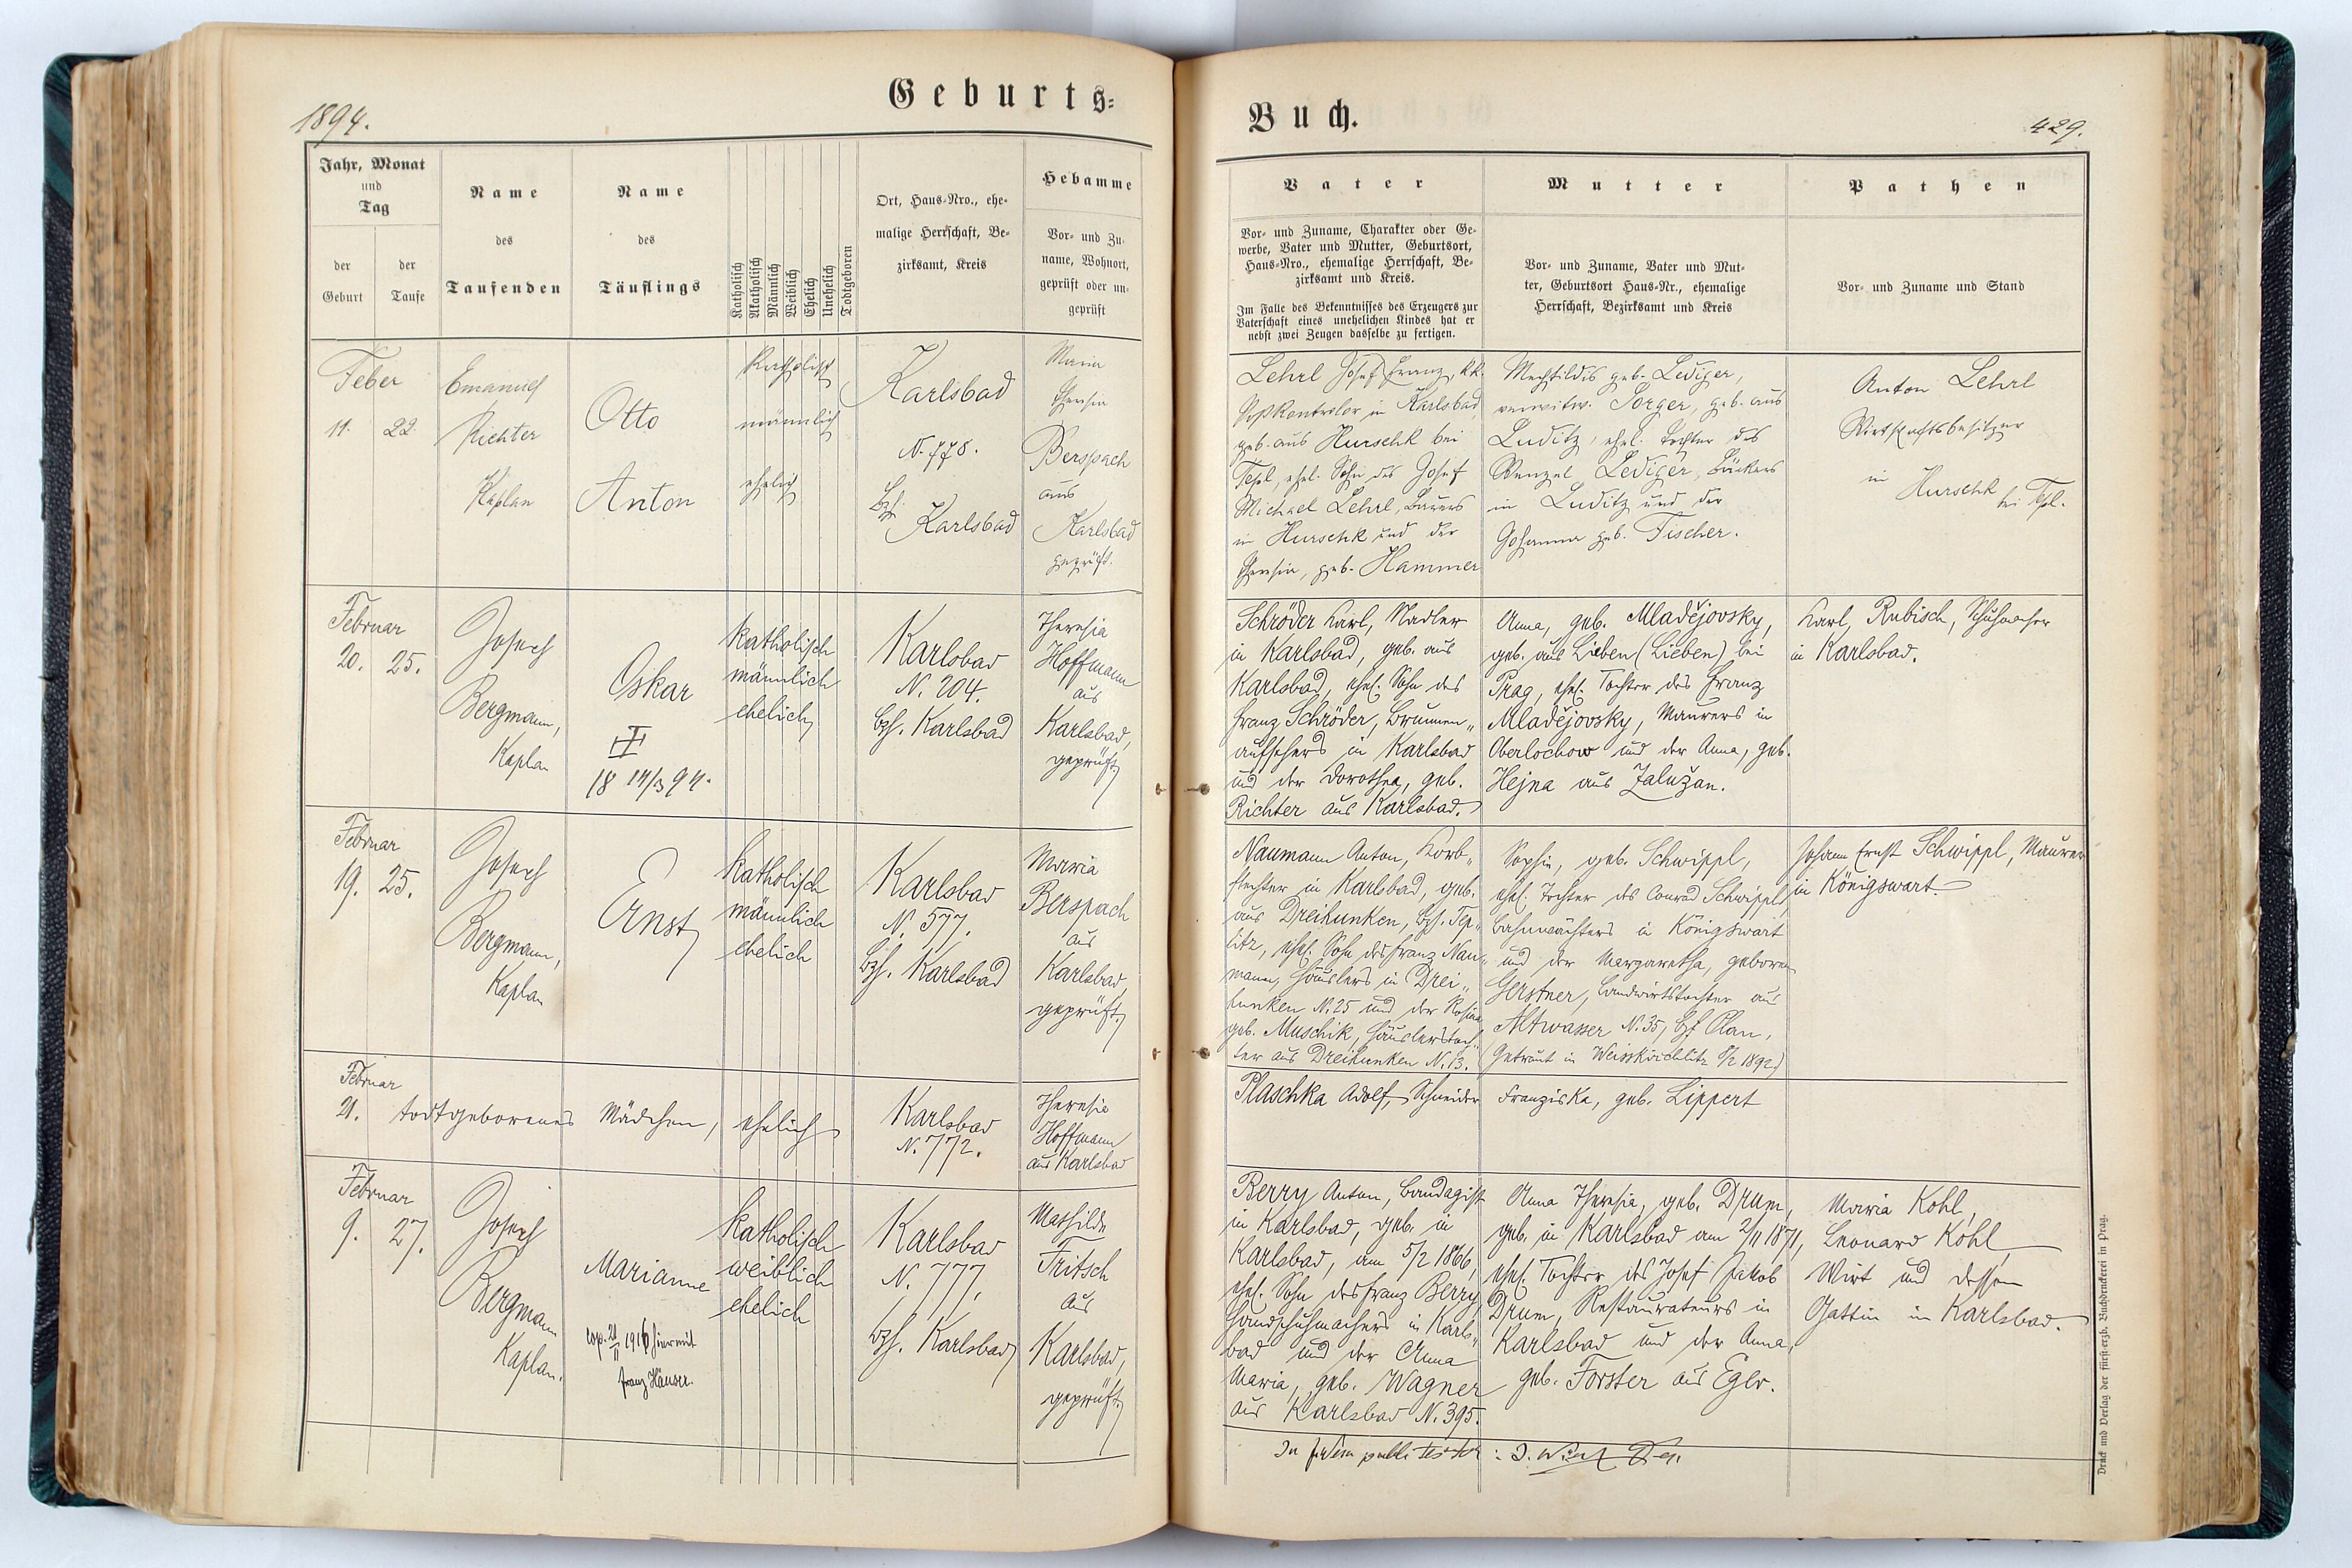 1894.
Geburts=
Jahr, Monat
und
Tag
der
Geburt
der
Taufe
Name
des
Taufenden
Name
des
Täuflings
Katholisch
Akatholisch
Männlich
Weiblich
Ehelich
Unehelich
Todtgeboren
Ort, Haus=Nro., ehe=
malige Herrschaft, Be=
zirksamt, Kreis
Hebamme
Vor= und Zu=
name, Wohnort,
geprüft oder un=
geprüft
Feber
11. 22.
Emanuel
Richter
Kaplan
Otto
Anton
katholisch
männlich
ehelich
Karlsbad
N. 778.
Bzh.
Karlsbad
Maria
Theresia
Berspach
aus
Karlsbad
geprüft.
Februar
20. 25.
Josef
Bergmann,
Kaplan
Oskar
18 14/3 94.
katholisch
männlich
ehelich
Karlsbad
N. 204.
bzh. Karlsbad
Theresia
Hoffmann
aus
Karlsbad,
geprüft
Februar
19. 25.
Josef
Bergmann,
Kaplan
Ernst
katholisch
männlich
ehelich
Karlsbad
N. 577.
bzh. Karlsbad
Maria
Berspach
aus
Karlsbad,
geprüft
Februar
21. todtgeborenes Mädchen, ehelich
Karlsbad
N. 772.
Theresia
Hoffmann
aus Karlsbad
Februar
9. 27.
Josef
Bergmann
Kaplan.
Marianne
cop. 21/II 1916 hier mit
Franz Häuser.
katholisch
weiblich
ehelich
Karlsbad
N. 777.
bzh. Karlsbad
Mathilde
Fritsch
aus
Karlsbad,
geprüft
Buch.
429.
Vater
Vor= und Zuname, Charakter oder Ge=
werbe, Vater und Mutter, Geburtsort,
Haus=Nro., ehemalige Herrschaft, Be=
zirksamt und Kreis.
Im Falle des Bekenntnisses des Erzeugers zur
Vaterschaft eines unehelichen Kindes hat er
nebst zwei Zeugen dasselbe zu fertigen.
Mutter
Vor= und Zuname, Vater und Mut=
ter, Geburtsort Haus=Nr., ehemalige
Herrschaft, Bezirksamt und Kreis
Pathen
Vor= und Zuname und Stand
Lehrl Josef Franz, kk.
Postkontrolor in Karlsbad,
geb. aus Hurschk bei
Tepl, ehel. Sohn des Josef
Michael Lehrl, Bauers
in Hurschk und der
Theresia, geb. Hammer
Mechtildis geb. Lediger,
verwitw. Sorger, geb. aus
Luditz, ehel. Tochter des
Wenzel Lediger, Bäckers
in Luditz und der
Johanna geb. Fischer.
Anton Lehrl
Wirtschaftsbesitzer
in Hurschk bei Tepl.
Schröder Karl, Nadler
in Karlsbad, geb. aus
Karlsbad, ehel. Sohn des
Franz Schröder, Brunnen„
aufsehers in Karlsbad
und der Dorothea, geb.
Richter aus Karlsbad.
Anna, geb. Mladějovsky,
geb. aus Lieben (Lieben) bei
Prag, ehel. Tochter des Franz
Mladějovsky, Maurers in
Oberlochow und der Anna, geb.
Hejna aus Zalužan.
Karl, Rubisch, Schuhmacher
in Karlsbad.
Naumann Anton, Korb„
flechter in Karlsbad, geb.
aus Dreihunken, Bzh. Tep„
litz, ehel. Sohn des Franz Nau„
mann, Häuslers in Drei„
hunken N. 25 und der Rosina
geb. Muschik, Häuslerstoch„
ter aus Dreihunken N. 13.
Sophie, geb. Schwippl,
ehel. Tochter des Conrad Schwippl,
Bahnwächters in Königswart
und der Margaretha, geborene
Gerstner, Landwirtstochter aus
Altwasser N. 35, bzh Plan,
(Getraut in Weisskirchlitz 8/2 1892)
Johann Ernst Schwippl, Maurer
in Königswart
Plaschka Adolf, Schneider
Franziska, geb. Lippert
Berry Anton, Bandagist
in Karlsbad, geb. in
Karlsbad, am 5/2 1866,
ehel. Sohn des Franz Berry
Handschuhmachers in Karls„
bad und der Anna
Maria, geb. Wagner
aus Karlsbad N. 395.
Anna Theresia, geb. Drum,
geb. in Karlsbad am 2/11 1871,
ehel. Tochter des Josef Jakob
Drum, Restaurateurs in
Karlsbad und der Anna,
geb. Forster aus Eger.
Maria Kohl,
Leonard Kohl,
Wirt und dessen
Gattin in Karlsbad.
In fidem publi testor
Druck und Verlag der fürst-erzb. Buchdruckerei in Prag.